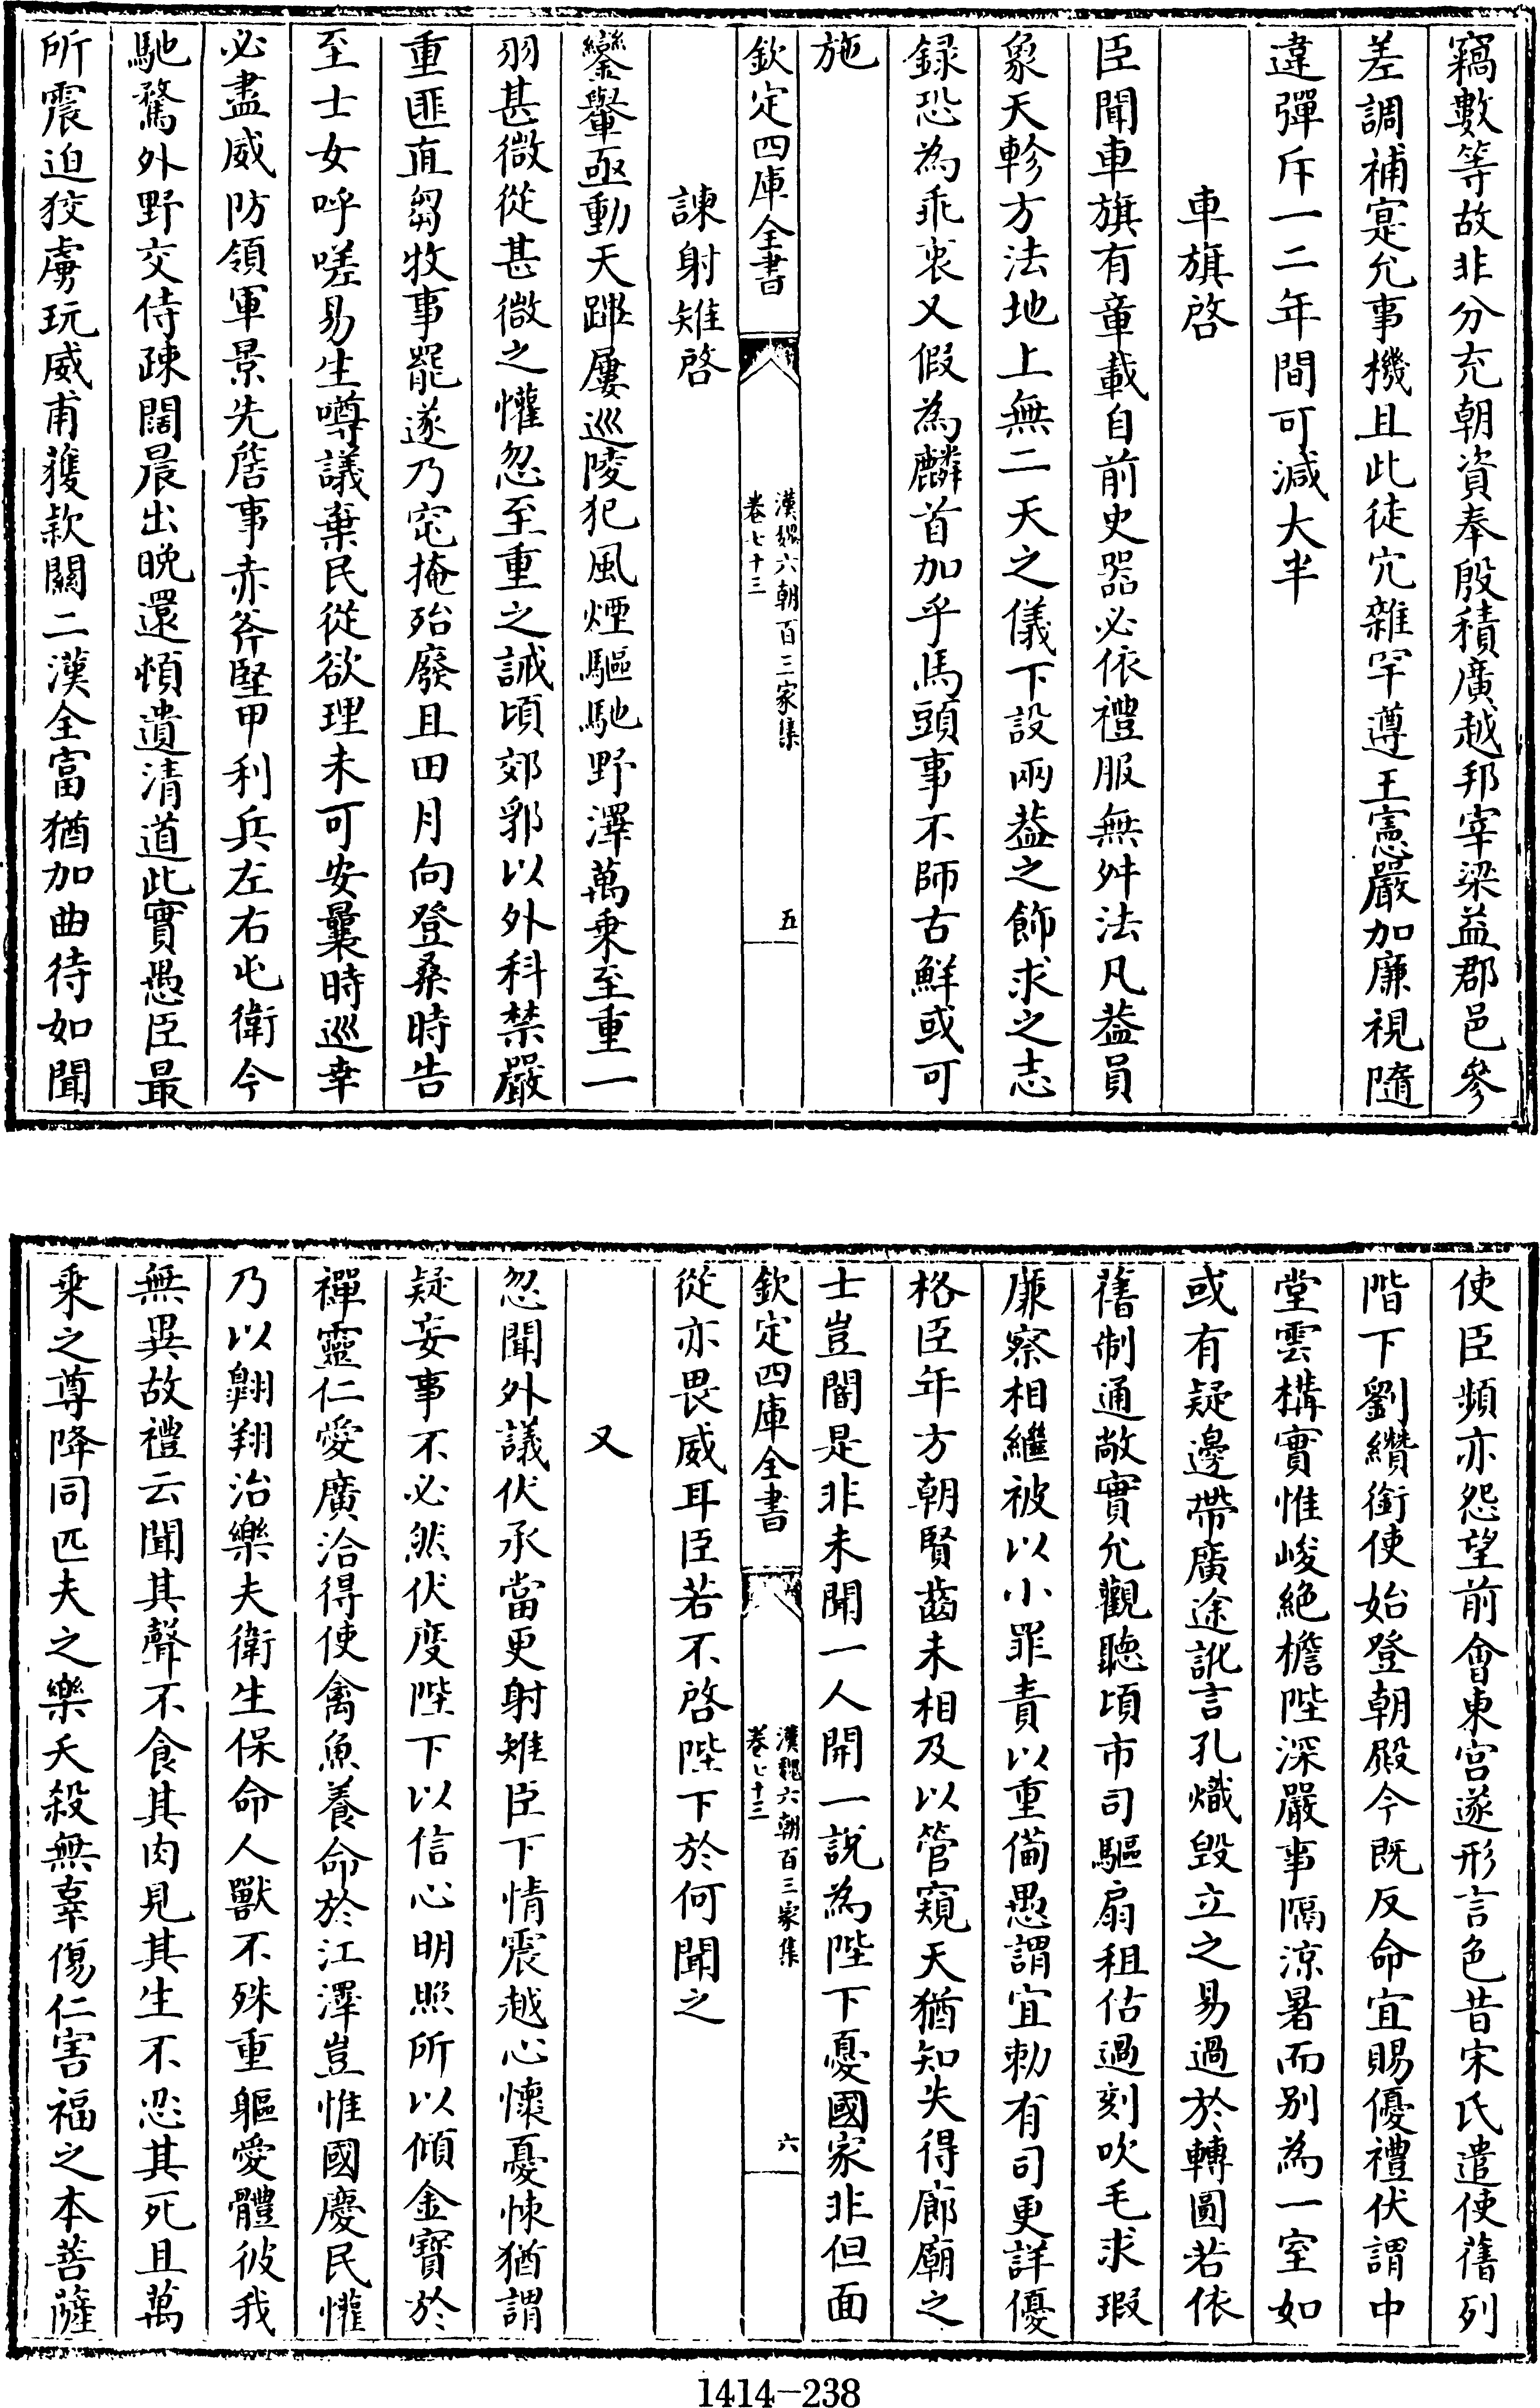 竊數等故非分充朝資奉殷積廣越邦宰梁益郡邑參
差調補寔允事機且此徒冗雜罕遵王憲嚴加廉視隨
違彈斥一二年間可減大半
車旗啓
臣聞車旗有章載自前史器必依禮服無舛法凡葢員
象天軫方法地上無二天之儀下設兩葢之飾求之志
録恐為乖衷又假為麟首加乎馬頭事不師古鮮或可
施
欽定四庫全書
漢魏六朝百三家集
卷七十三
五
諌射雉啓
鑾轝亟動天蹕屢巡陵犯風煙驅馳野澤萬乗至重一
羽甚微從甚微之懽忽至重之誡頃郊郛以外科禁嚴
重匪直芻牧事罷遂乃窀掩殆廢且田月向登桑時告
至士女呼嗟易生噂議棄民從欲理未可安曩時巡幸
必盡威防領軍景先詹事赤斧堅甲利兵左右屯衛今
馳騖外野交侍疎闊晨出晩還頓遺清道此實愚臣最
所震迫狡虜玩威甫獲欵關二漢全富猶加曲待如聞
使臣頻亦怨望前會東宫遂形言色昔宋氏遣使舊列
階下劉纘銜使始登朝殿今既反命宜賜優禮伏謂中
堂雲構實惟峻絶檐陛深嚴事隔涼暑而别為一室如
或有疑邊帶廣途訛言孔熾毁立之易過於轉圓若依
舊制通敞實允觀聽頃市司驅扇租估過刻吹毛求瑕
廉察相繼被以小罪責以重備愚謂宜勅有司更詳優
格臣年方朝賢齒未相及以管窺天猶知失得廊廟之
士豈闇是非未聞一人開一說為陛下憂國家非但面
欽定四庫全書
漢魏六朝百三家集
卷七十三
六
從亦畏威耳臣若不啓陛下於何聞之
又
忽聞外議伏承當更射雉臣下情震越心懷憂悚猶謂
疑妄事不必然伏度陛下以信心明照所以傾金寳於
禪靈仁愛廣洽得使禽魚養命於江澤豈惟國慶民懽
乃以翺翔治樂夫衛生保命人獸不殊重軀愛體彼我
無異故禮云聞其聲不食其肉見其生不忍其死且萬
乗之尊降同匹夫之樂夭殺無辜傷仁害福之本菩薩
1414-238